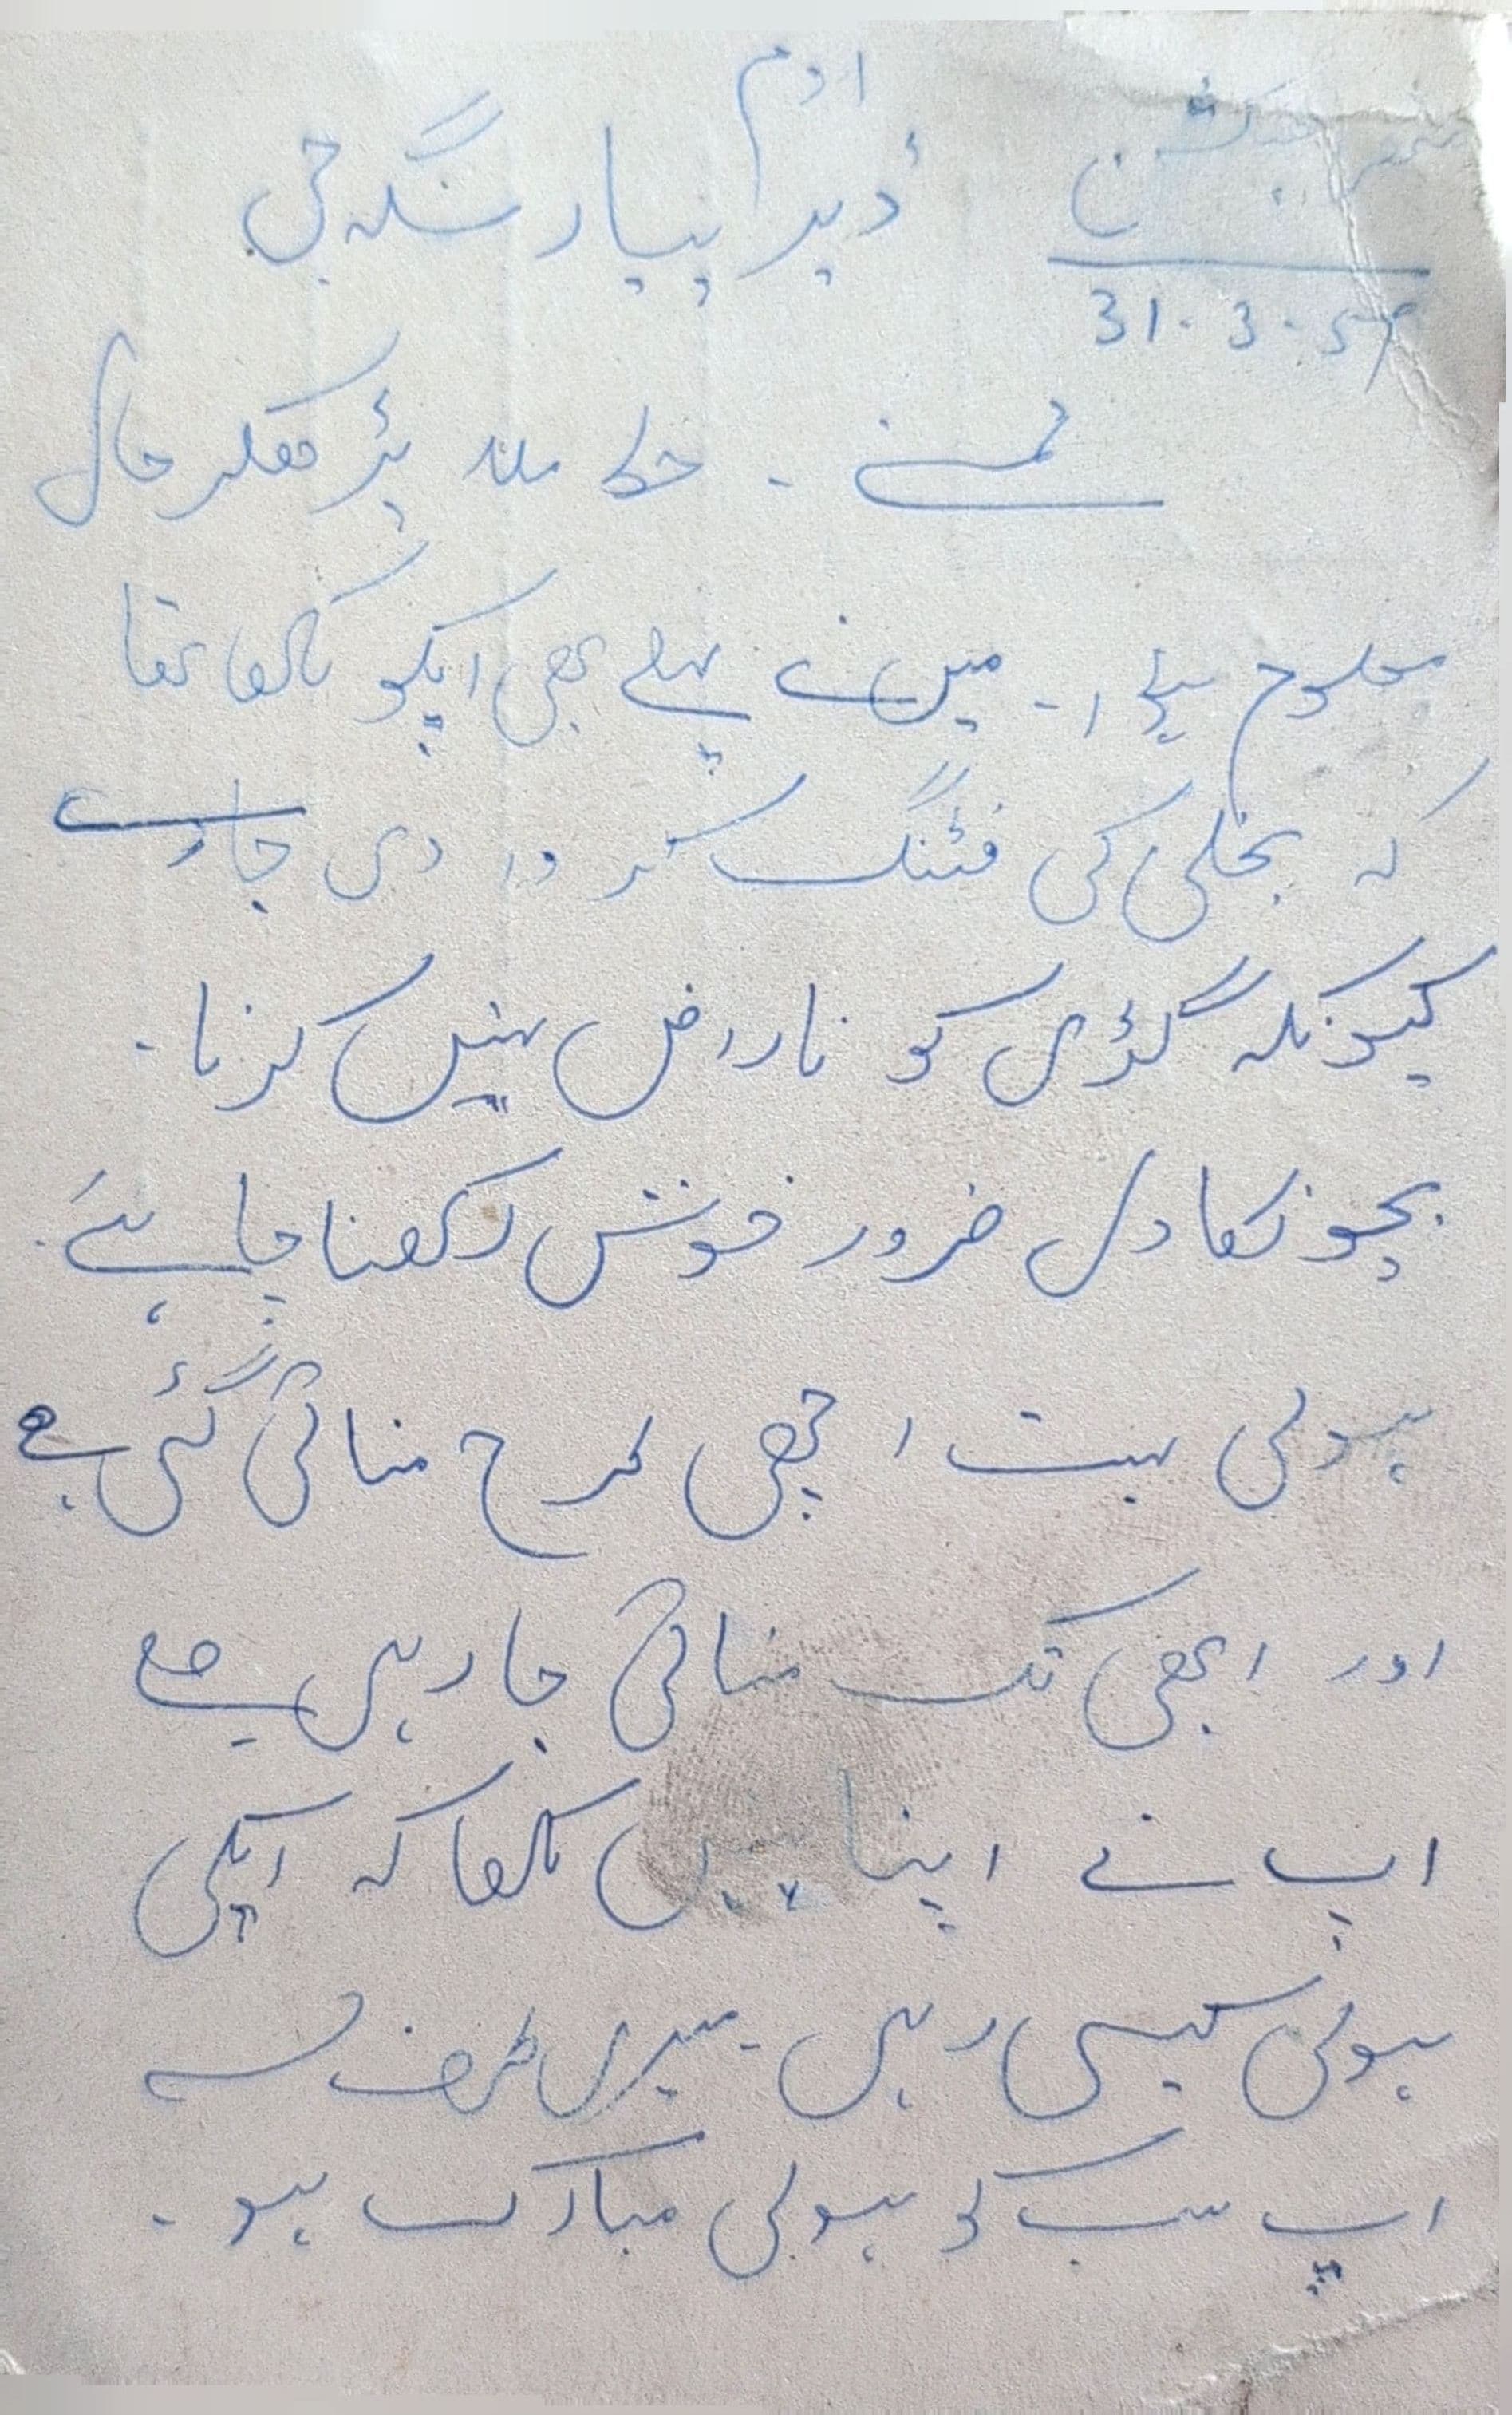 اوم
ڈیر پیار سنگھ جی
31.3.57
نمستے ۔ خط ملا پڑھکر حال
معلوم ہوا ۔ میں نے پہلے بھی اپکو لکھا تھا
کہ بجلی کی فٹنگ کروا دی جاوے
کیونکہ گڈی کو ناراض نہیں کرنا ۔
بچونکا دل ضرور خوش رکھنا چاہیئے ۔
ہولی بہت اچھی طرح منائی گئی ہے
اور ابھی تک منائی جا رہی ہے
اپ نے اپنا نہیں لکھا کہ اپکی
ہولی کیسی رہی ۔ میری طرف سے
اپ سب کو ہولی مبارک ہو ۔